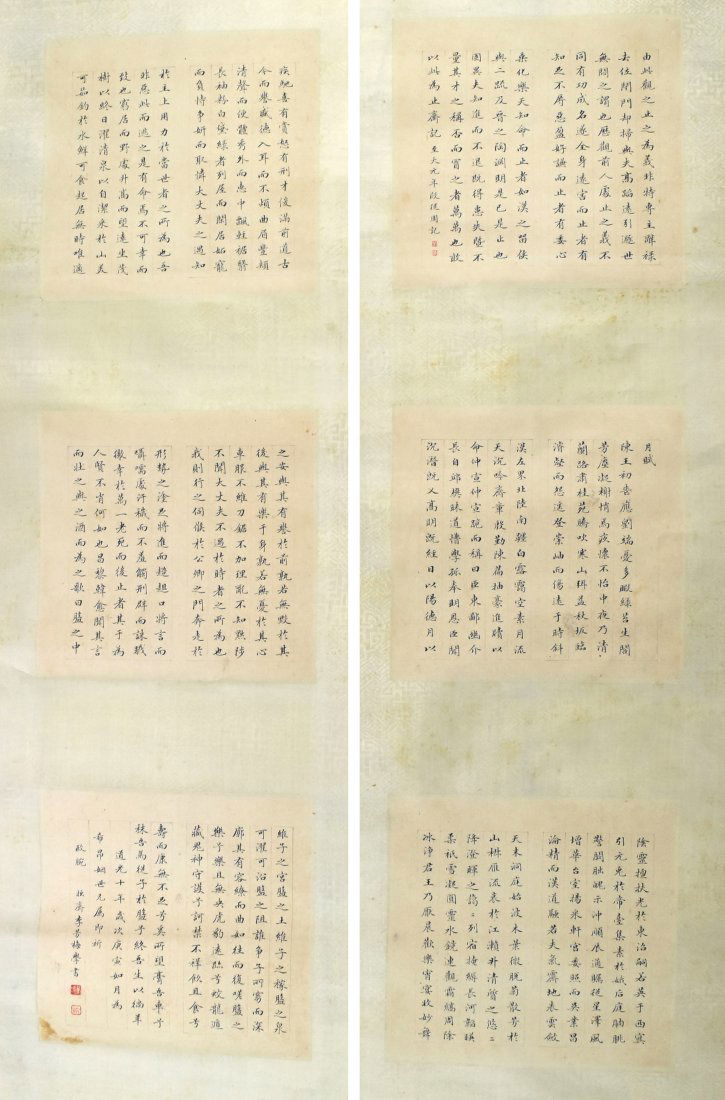 由此觀之止之為義非特專主辭祿
去位閉門却掃與夫高蹈遠引遯世
無悶之謂也歷觀前人處止之義不
同有功成名遂全身遠害而止者有
知足不辱惡盈好謙而止者有委心
乘化樂天知命而止者如漢之留侯
與二疏及晉之陶淵明是已是止也
固異夫知進而不退既得患失暨不
量其才之稱否而冒之者萬萬也敢
以此為止齋記 至大元年改從周記
月賦
陳王初喪應劉端憂多暇綠苔生閣
芳塵凝榭悄焉疚懷不怡中夜乃清
蘭路肅桂苑騰吹寒山弭蓋秋坂臨
濬壑而怨遙登崇岫而傷遠于時斜
漢左界北陸南躔白露曖空素月流
天沉吟齊章殷勤陳篇抽豪進牘以
命仲宣仲宣跪而稱曰臣東鄙幽介
長自邱樊昧道懵學孤奉明恩臣聞
沉潛既义高明既經日以陽德月以
陰靈擅扶光於東沼嗣若英于西冥
引元兔於帝臺集素娥於后庭朒朓
警闕朏魄示沖順辰通燭從星澤風
增華台室揚采軒宮委照而吳業昌
淪精而漢道融若夫氣霽地表雲斂
天末洞庭始波木葉微脫菊散芳於
山椒雁流哀於江瀨升清質之悠〻
降澄暉之藹〻列宿掩縟長河韜暎
柔祇雪凝圓靈水鏡連觀霜縞周除
冰淨君王乃厭晨歡樂宵宴收妙舞
疾馳喜有賞怒有刑才俊滿前道古
今而譽盛德入耳而不煩曲眉豐頰
清聲而便體秀外而惠中飄輕裾翳
長袖粉白黛綠者列屋而閒居妬寵
而負恃爭妍而取憐大丈夫之遇知
於主上用力於當世者之所為也吾
非惡此而逃之是有命焉不可幸而
致也窮居而野處升高而望遠坐茂
樹以終日濯清泉以自潔采於山美
可茹釣於水鮮可食起居無時唯適
之安與其有譽於前孰若無毀於其
後與其有樂于身孰若無憂於其心
車服不維刀鋸不加理亂不知黜陟
不聞大丈夫不遇於時者之所為也
我則行之伺候於公卿之門奔走於
形勢之塗足將進而趑趄口將言而
囁嚅處汙穢而不羞觸刑辟而誅戮
徼幸於萬一老死而後止者其于為
人賢不肖何如也昌黎韓愈聞其言
而壯之與之酒而為之歌曰盤之中
維子之宮盤之土維子之稼盤之泉
可濯可沿盤之阻誰爭子所窈而深
廓其有容繚而曲如往而復嗟盤之
樂兮樂且無央虎豹遠跡兮蛟龍遁
藏鬼神守護兮訶禁不祥飲且食兮
壽而康無不足兮奚所望膏吾車兮
秣吾馬從子於盤兮終吾生以徜徉
道光十年歲次庚寅如月為
布昂姻世兄屬即祈
政腕 李芳梅學書